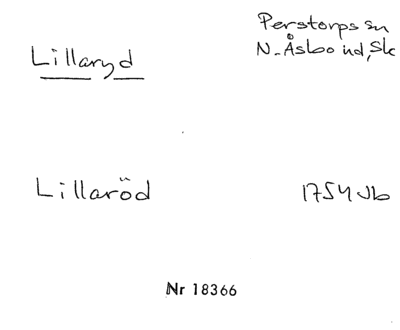 Perstorps sn
Lillaryd
N. Åsbo hd, Sk
Lillaröd 1754 Jb
Nr 18366